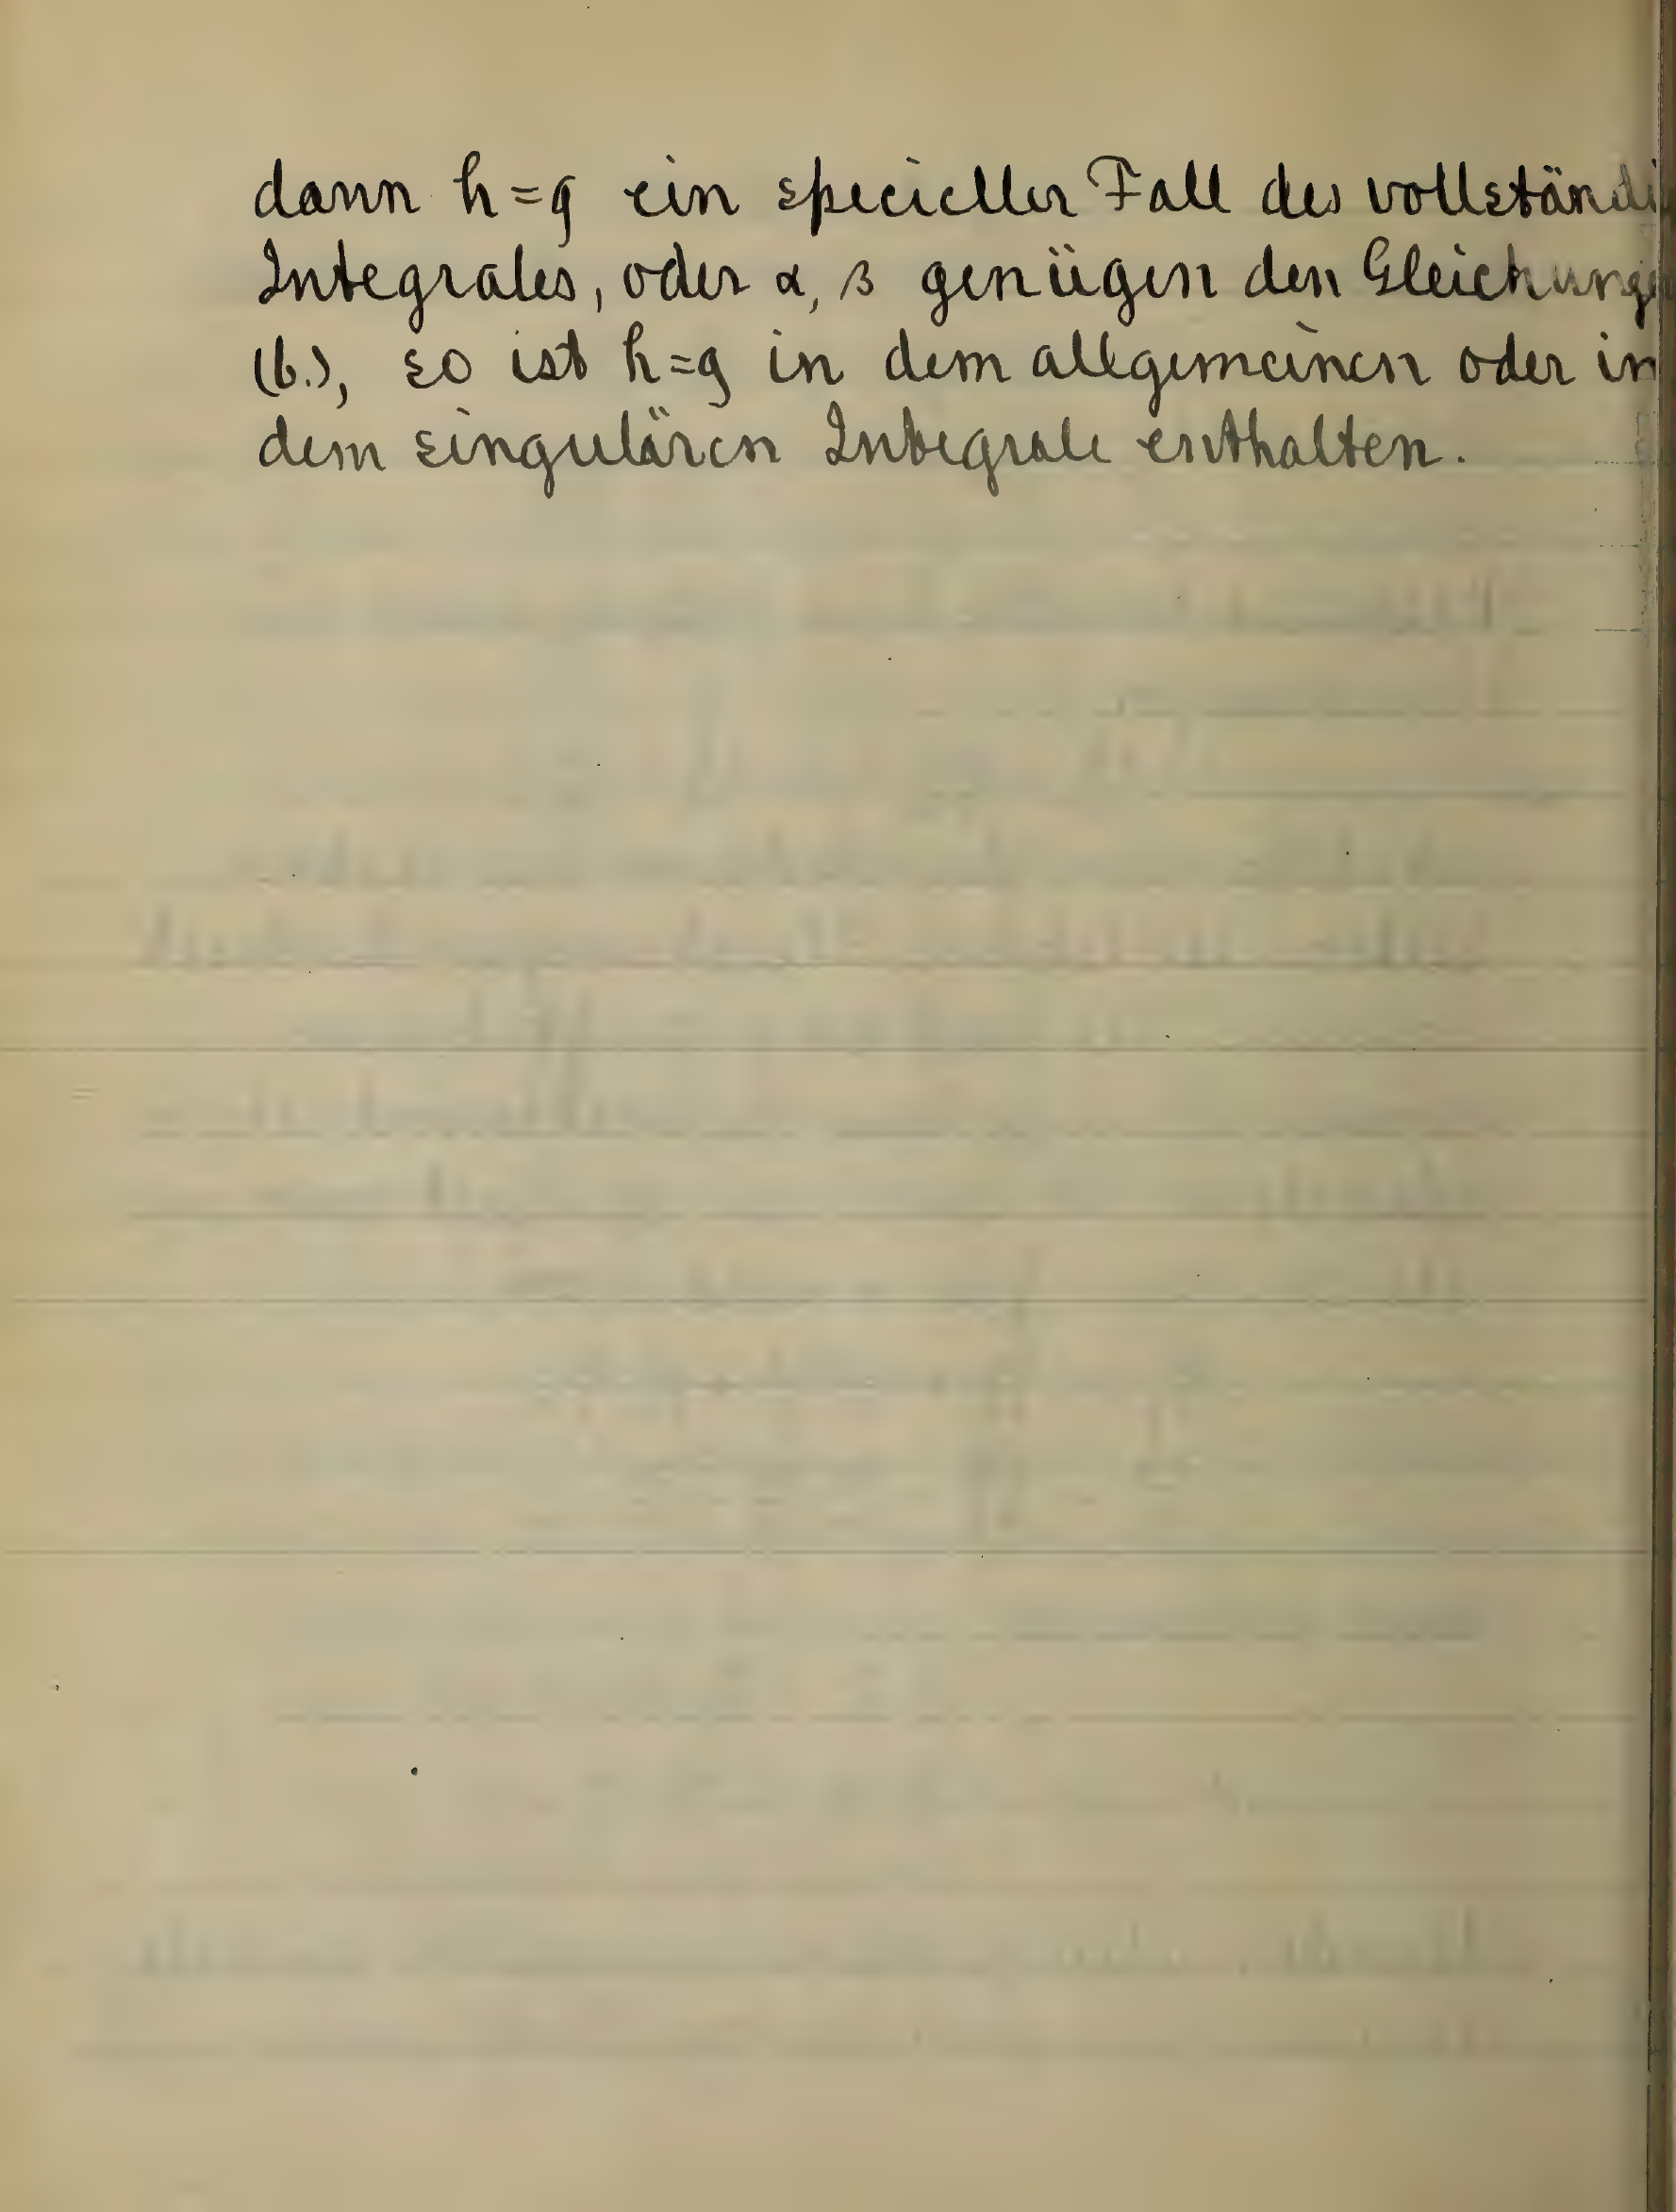 dann h=g ein specieller Fall des vollständi
Integrales, oder α, β genügen den Gleichunge
(6.), so ist h=g in dem allgemeinen oder in
dem singulären Integrale enthalten.